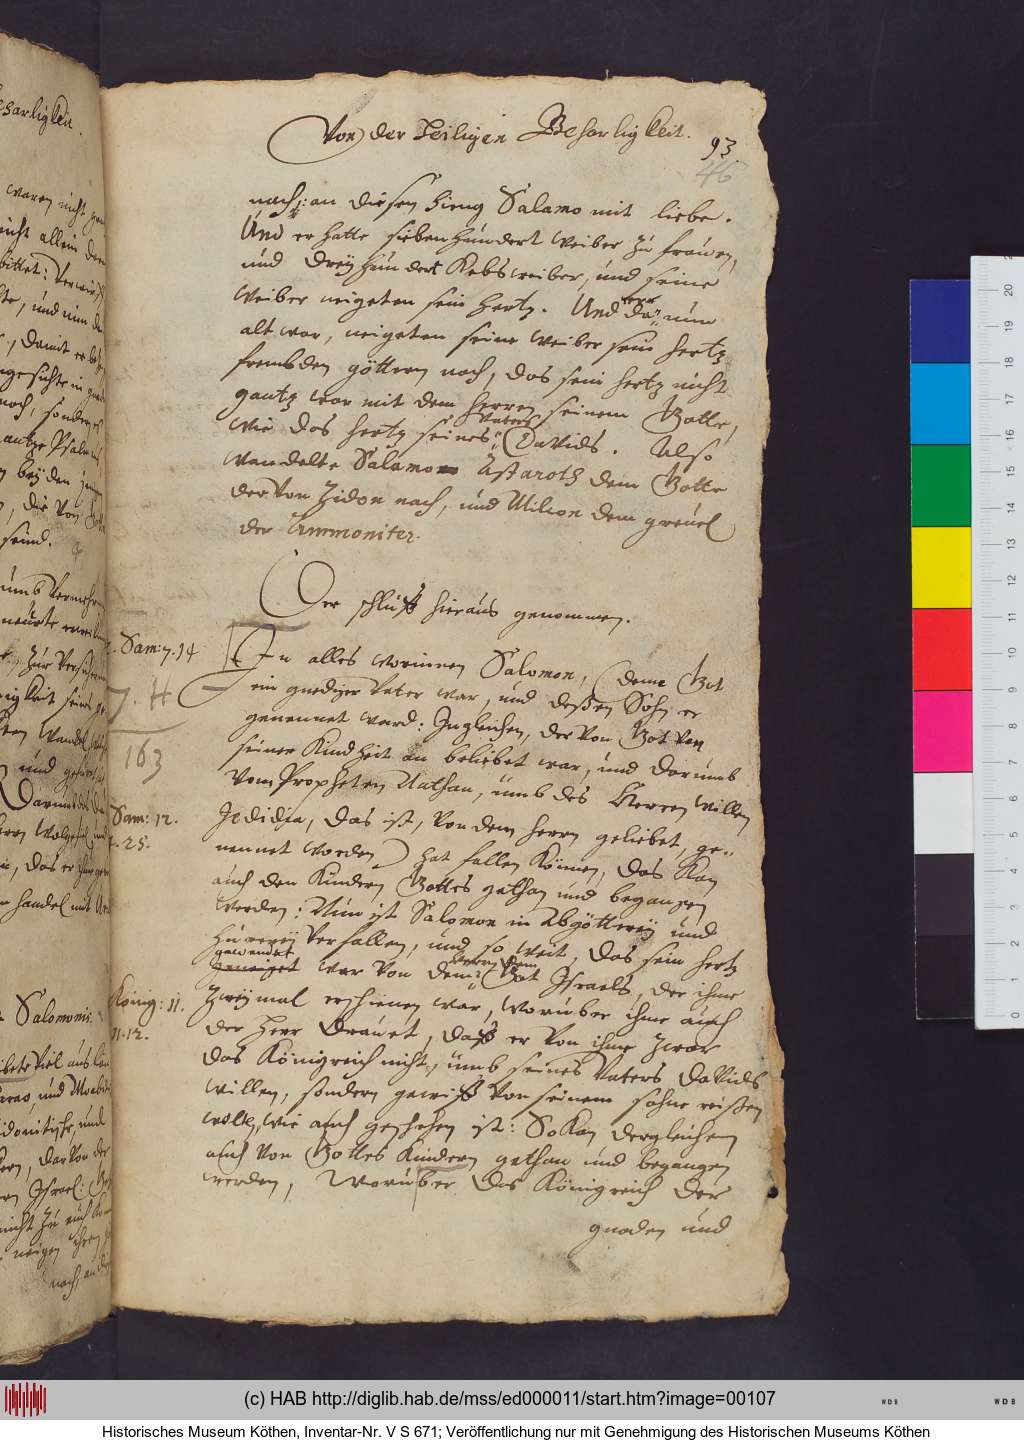 Von der Heiligen Beharligkeit.
93
46
nach: an diesen hieng Salamo mit liebe.
Und er hatte siebenhundert weiber zu frauwen,
und dreÿhundert Kebsweiber, und seine
weiber neigeten sein hertz. Und da er nun
alt war, neigeten seine weiber sein hertz
frembden göttern nach, das sein hertz nicht
gantz war mit dem herren seinem Gotte,
wie das hertz seines Vaters Davids. Also
wandelte Salamo Astaroth dem Gotte
der von Zidon nach, und Milcon dem greuel
der Ammoniter.
Der schluß hieraus genommen.
Sam: 7. 14
7. 14
163
In alles worinnen Salomon, (deme Got
ein gnediger Vater war, und deßen Sohn er
genennet ward: Ingleichen, der von Got von
seiner Kindheit an beliebet war, und darumb
vom Propheten Nathan, umb des Herren willen
Sam: 12.
25.
Jedidia, das ist, von dem herrn geliebet, ge-
nennet worden) hat fallen können, das kan
auch den Kindern Gottes gethan und begangen
werden: Nun ist Salomon in abgötterey und
hurereÿ verfallen, und so weit, das sein hertz
gewendet
geneiget war von dem Herren dem Got Israels, der ihme
König: 11.
11. 12.
Zweymal erschienen war, woruber ihme auch
der Herr drauet, daß er von ihme zwar
das Königreich nicht, umb seines Vaters Davids
willen, sondern gewiß von seinem sohne reißen
wolle, wie auch geschehen ist: So kan dergleichen
auch von Gottes Kindern gethan und begangen
werden, woruber das Königreich der
gnaden und
(c) HAB http://diglib.hab.de/mss/ed000011/start.htm?image=00107
Historisches Museum Köthen, Inventar-Nr. V S 671; Veröffentlichung nur mit Genehmigung des Historischen Museums Köthen